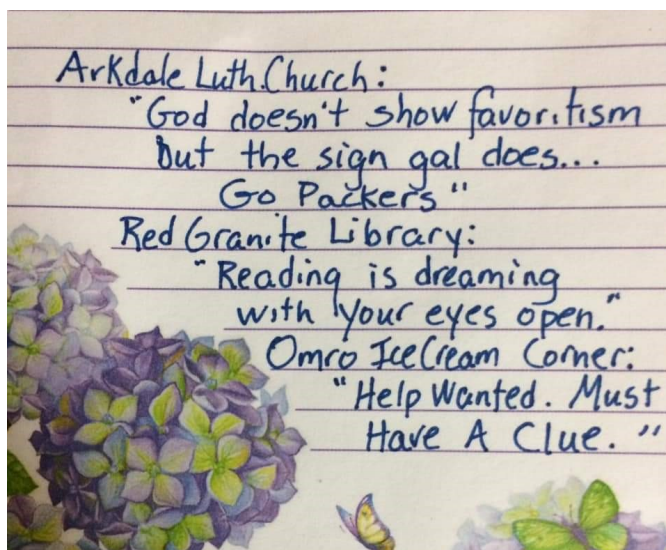 Arkdale Luth. Church:
"God doesn't show favoritism
but the sign gal does...
Go Packers"
Red Granite Library:
"Reading is dreaming
with your eyes open."
Omro IceCream Corner:
"Help Wanted. Must
Have A Clue."